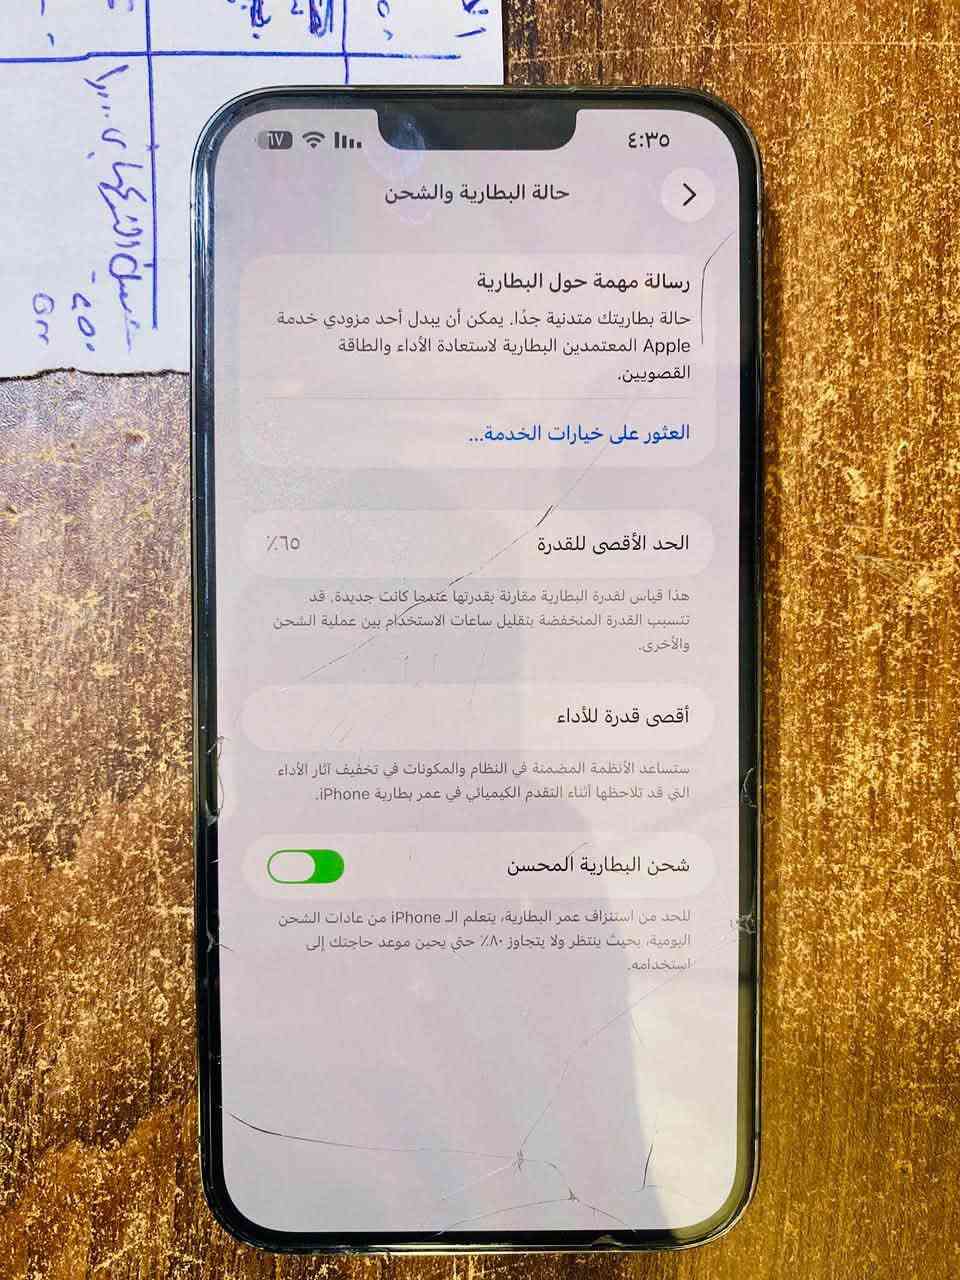 ٤:٣٥
٦٧
حالة البطارية والشحن
رسالة مهمة حول البطارية
حالة بطاريتك متدنية جدًا. يمكن أن يبدل أحد مزودي خدمة
Apple المعتمدين البطارية لاستعادة الأداء والطاقة
القصويين.
العثور على خيارات الخدمة...
الحد الأقصى للقدرة ٦٥٪
هذا قياس لقدرة البطارية مقارنة بقدرتها عندما كانت جديدة. قد
تتسبب القدرة المنخفضة بتقليل ساعات الاستخدام بين عملية الشحن
والأخرى.
أقصى قدرة للأداء
ستساعد الأنظمة المضمنة في النظام والمكونات في تخفيف آثار الأداء
التي قد تلاحظها أثناء التقدم الكيميائي في عمر بطارية iPhone.
شحن البطارية المحسن
للحد من استنزاف عمر البطارية، يتعلم الـ iPhone من عادات الشحن
اليومية، بحيث ينتظر ولا يتجاوز ٨٠٪ حتى يحين موعد حاجتك إلى
استخدامه.